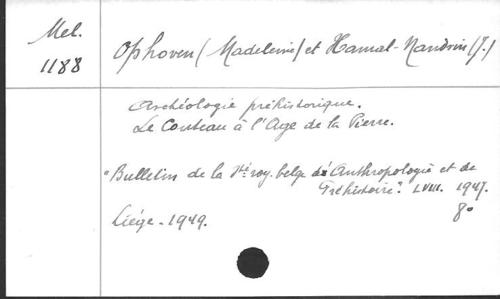 Mel.
1188
Ophoven (Madeleine) et Hamal-Nandrin (J.)
Archéologie préhistorique.
Le Couteau à l'Age de la Pierre.
"Bulletin de la Sté roy. belge d'Anthropologie et de
Préhistoire". LVIII. 1947.
Liége - 1949.
8°